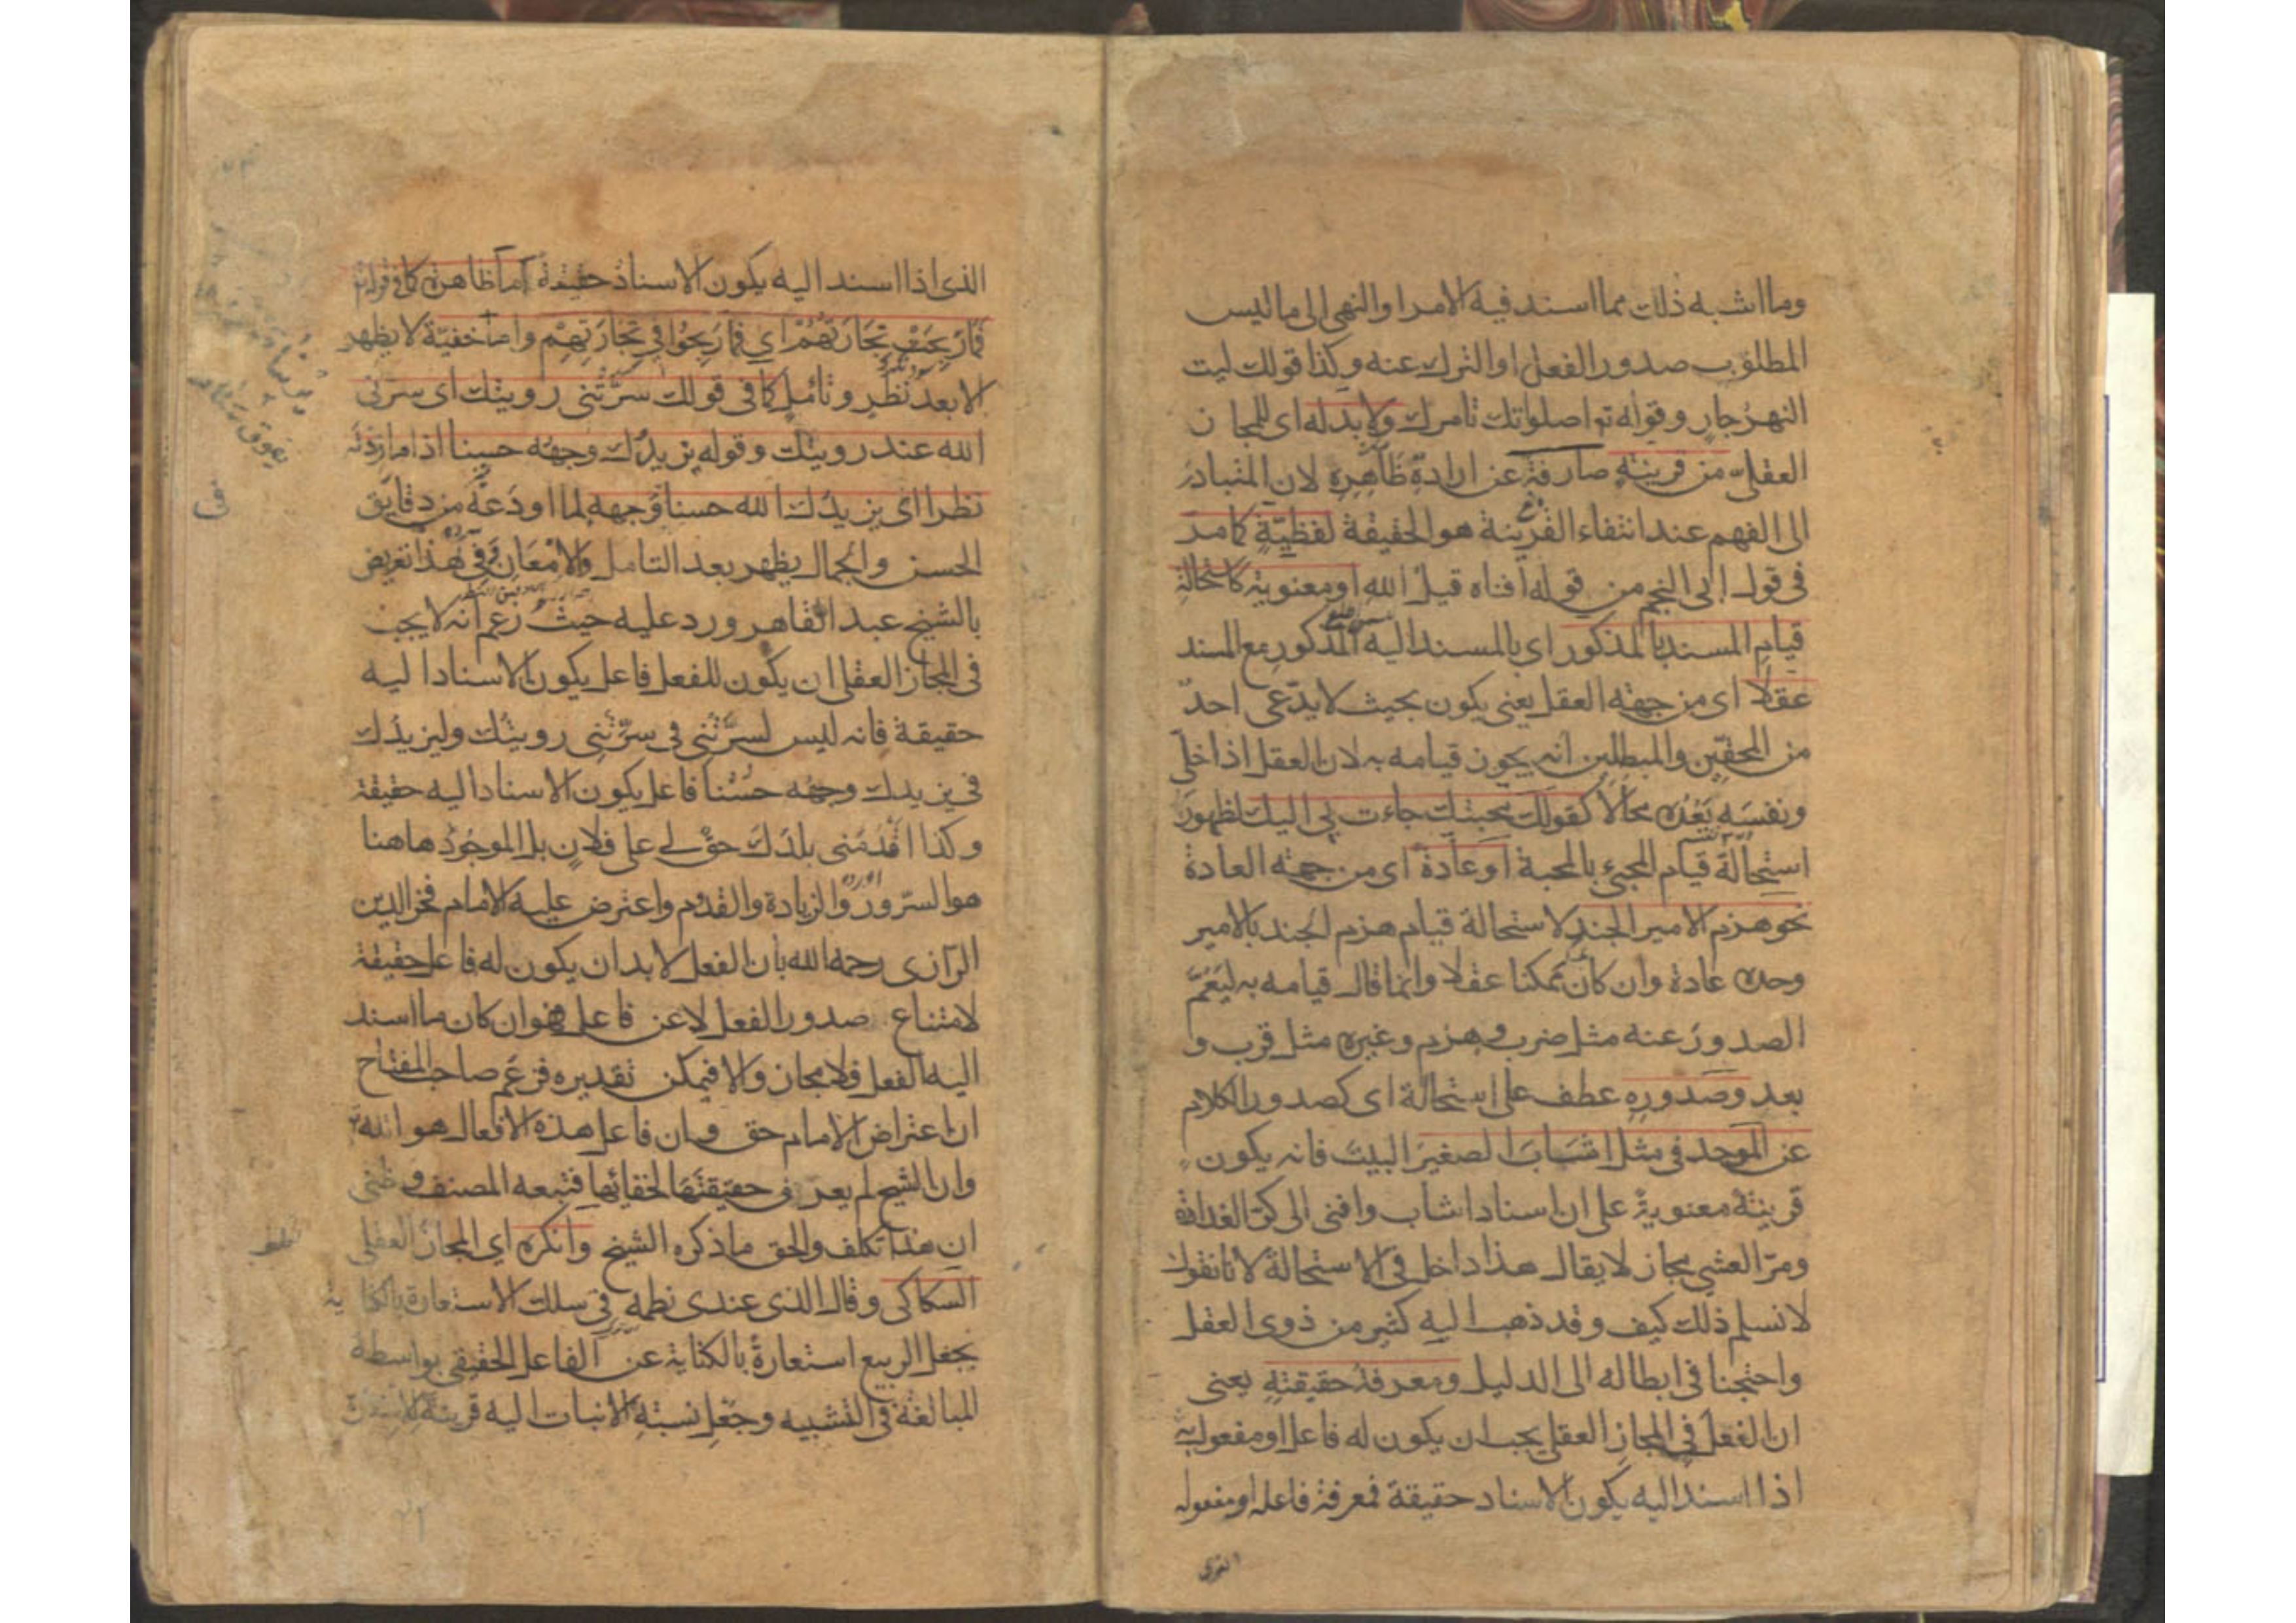 وما اشبه ذلك مما اسند فيه الامر او النهى الى ما ليس
المطلوب صدور الفعل او الترك عنه وكذا قولك ليت
النهر جار وقوله تم اصلواتك تامرك ولا بد له اى للمجاز
العقلى من قرينة صارفة عن ارادة ظاهره لان المتبادر
الى الفهم عند انتفاء القرينة هو الحقيقة لفظيّة كما مر
فى قول ابى النجم من قوله افناه قيل الله او معنوية كاستحالة
قيام المسند بالمذكور اى بالمسند اليه المذكور مع المسند
عقلا اى من جهة العقل يعنى يكون بحيث لا يدّعى احدٌ
من المحقّين والمبطلين انه يجوز قيامه به لان العقل اذا خلّى
ونفسَه يَعُدّه محالا كقولك محبتك جاءت بى اليك لظهور
استحالة قيام المجئ بالمحبة او عادة اى من جهة العادة
نحو هزم الامير الجند لاستحالة قيام هزم الجند بالامير
وحده عادة وان كان ممكنا عقلا وانما قال قيامه به ليَعُمّ
الصدور عنه مثل ضرب وهزم وغيره مثل قرب و
بعد وصدوره عطف على استحالة اى كصدور الكلام
عن الموحد فى مثل اشاب الصغير البيت فانه يكون
قرينة معنوية على ان اسناد اشاب وافنى الى كرّ الغداة
ومرّ العشى مجاز لا يقال هذا داخل فى الاستحالة لانا نقول
لا نسلم ذلك كيف وقد ذهب اليه كثير من ذوى العقل
واحتجنا فى ابطاله الى الدليل ومعرفة حقيقته يعنى
ان الفعل فى المجاز العقلى يجب ان يكون له فاعل او مفعول به
اذا اسند اليه يكون الاسناد حقيقة فمعرفة فاعله او مفعوله
الذى اذا اسند اليه يكون الاسناد حقيقة اما ظاهرة كما فى قوله تم
فَمَا رَبِحَتْ تِجَارَتُهُمْ اي فما رَبِحُوا فِي تِجَارَتِهِمْ واما خفيّة لا يظهر
الا بعد نظر وتأمل كما فى قولك سرّتنى رويتك اى سرنى
الله عند رويتك وقوله يزيدك وجهه حسنا اذا ما زدته
نظرا اى يزيدك الله حسنا فى وجهه لما اودعَهُ من دقايق
الحسن والجمال يظهر بعد التامل والامعان وفى هذا تعريض
بالشيخ عبد القاهر ورد عليه حيث زعم انه لا يجب
فى المجاز العقلى ان يكون للفعل فاعل يكون الاسناد اليه
حقيقة فانه ليس لسرّتنى فى سرّتنى رويتك وليزيدك
فى يزيدك وجهه حُسْنا فاعل يكون الاسناد اليه حقيقة
وكذا اقدمنى بلدك حق لى على فلان بل الموجود هاهنا
هو السرور والزيادة والقدوم واعترض عليه الامام فخر الدين
الرازى رحمه الله بان الفعل لا بد ان يكون له فاعل حقيقة
لامتناع صدور الفعل لا عن فاعل فهو ان كان ما اسند
اليه الفعل فلا مجاز والا فيمكن تقديره فزعم صاحب المفتاح
ان اعتراض الامام حق وان فاعل هذه الافعال هو الله تم
وان الشيخ لم يعرف حقيقتها لخفائها فتبعه المصنف وظنى
ان هذا تكلف والحق ما ذكره الشيخ وانكره اي المجاز العقلى
السكاكى وقال الذى عندى نظمه فى سلك الاستعارة بالكناية
يجعل الربيع استعارةً بالكناية عن الفاعل الحقيقى بواسطة
المبالغة فى التشبيه وجَعْلِ نسبة الانبات اليه قرينة للاستعارة